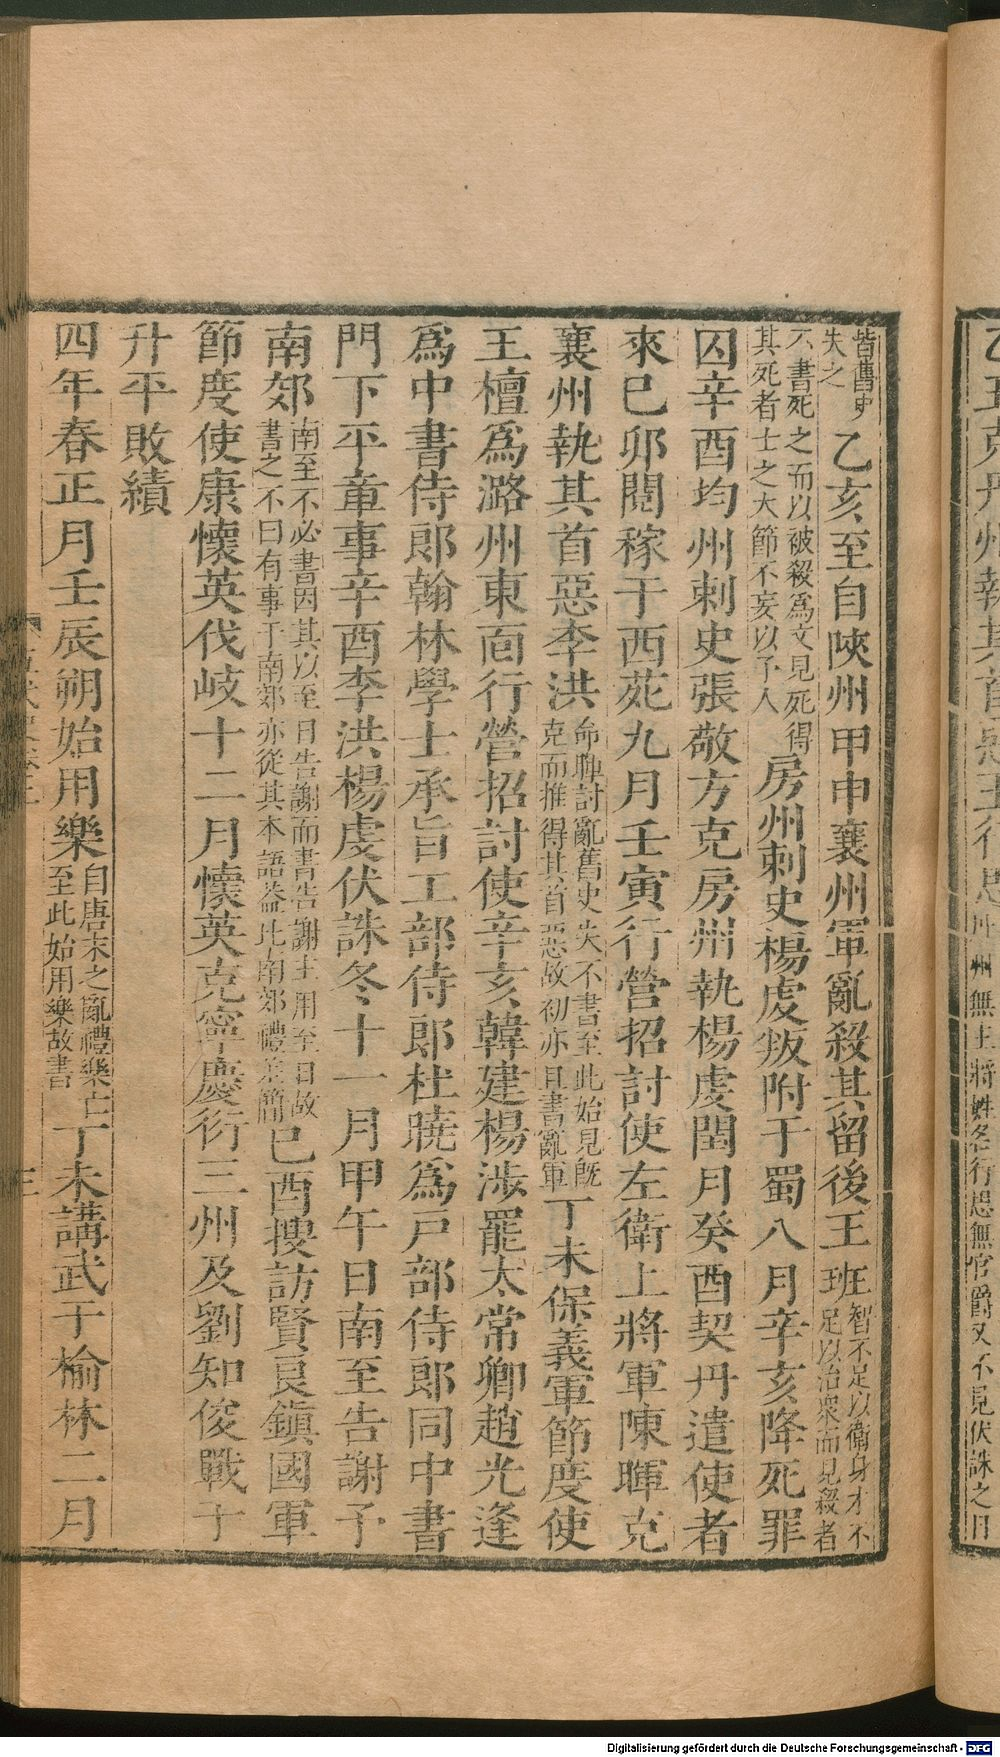 乙丑克丹州執其首惡王行思丹州無主將姓名行思無官爵又不見伏誅之日
皆舊史失之乙亥至自陝州甲申襄州軍亂殺其留後王班智不足以衞身才不足以治衆而見殺者
不書死之而以被殺爲文見死得其死者士之大節不妄以予人房州刺史楊虔叛附于蜀八月辛亥降死罪
囚辛酉均州刺史張敬方克房州執楊虔閏月癸酉契丹遣使者
來已卯閱稼于西苑九月壬寅行營招討使左衛上將軍陳暉克
襄州執其首惡李洪命暉討亂舊史失不書至此始見旣克而推得其首惡故初亦且書亂軍丁未保義軍節度使
王檀爲潞州東面行營招討使辛亥韓建楊涉罷太常卿趙光逢
爲中書侍郎翰林學士承旨工部侍郎杜曉爲戶部侍郎同中書
門下平章事辛酉李洪楊虔伏誅冬十一月甲午日南至告謝于
南郊南至不必書因其以至日告謝而書告謝主用至日故書之不曰有事于南郊亦從其本語蓋比南郊禮差簡已酉搜訪賢良鎮國軍
節度使康懷英伐岐十二月懷英克寧慶衍三州及劉知俊戰于
升平敗績
四年春正月壬辰朔始用樂自唐末之亂禮樂亡至此始用樂故書丁未講武于榆林二月
三
Digitalisierung gefördert durch die Deutsche Forschungsgemeinschaft - DFG